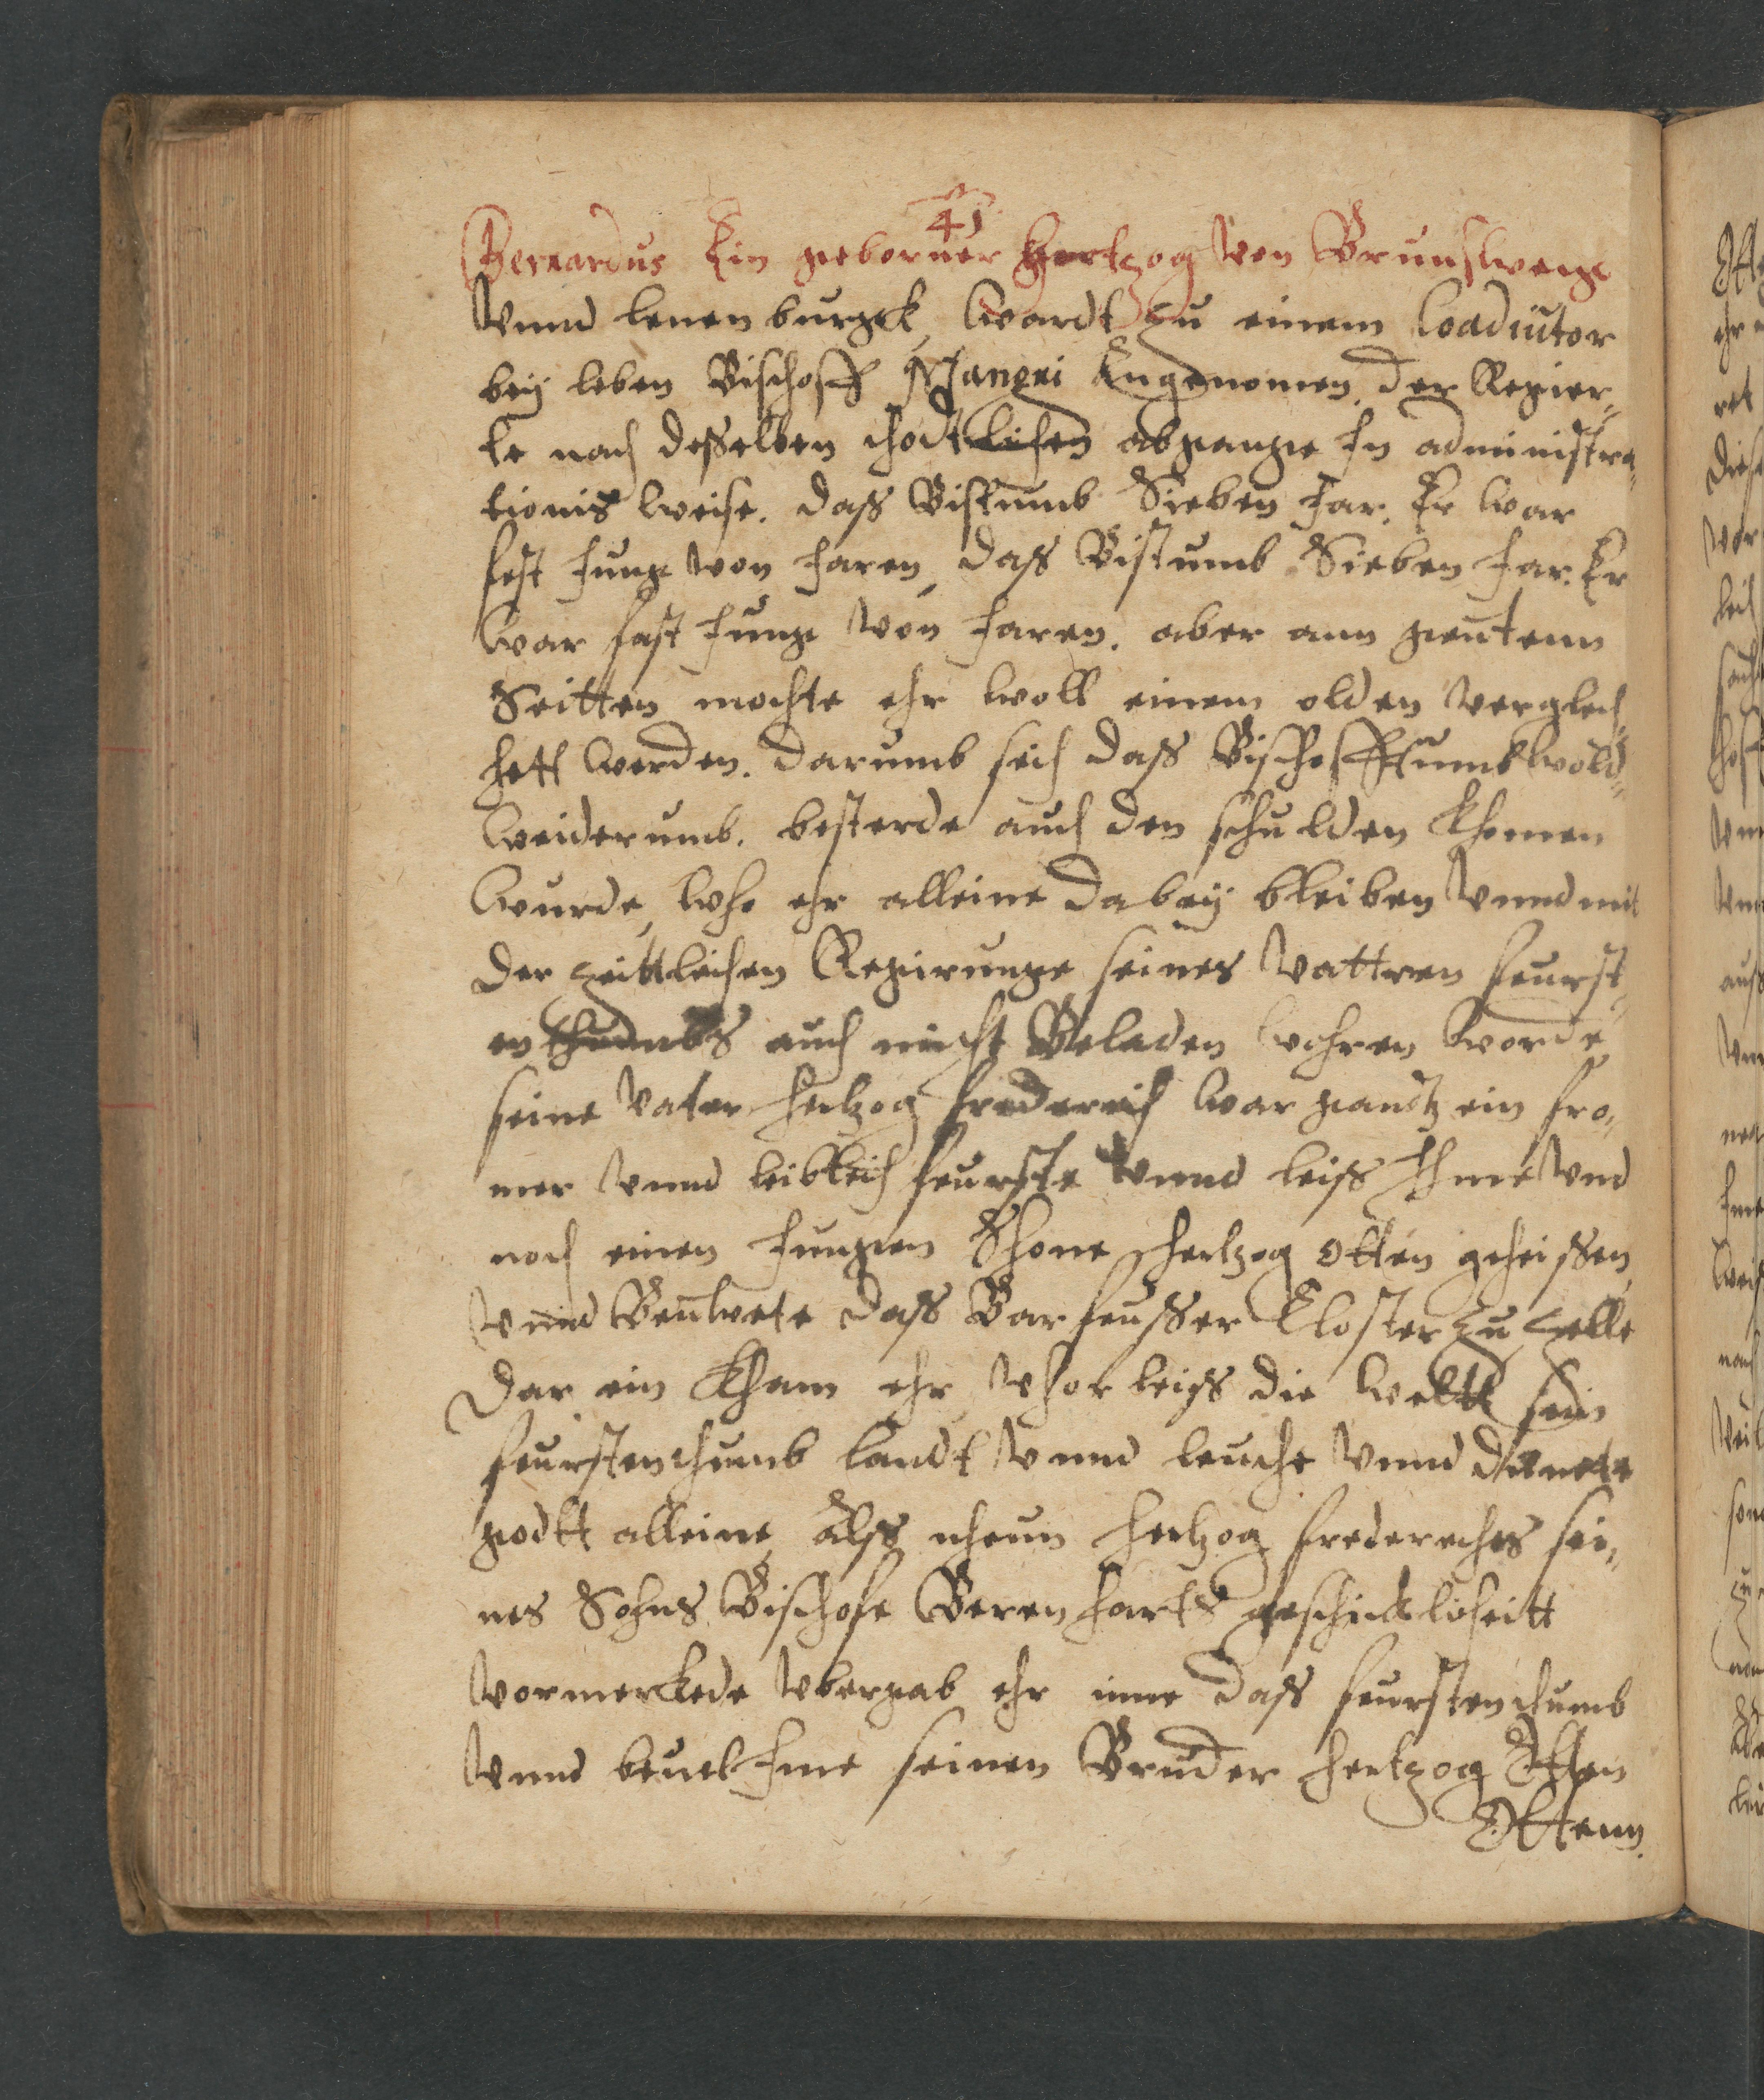 41
Bernardus Ein geborner Hertzog von Brunswege
vnnd lenenburgck, wardt zu einem Coadiutor
bey leben Bischoff Mangni Angenomen. der Regier„
te nach desselben thodtlichen abgange In administra„
tionis weise. daß Bistumb Sieben Jar. Er war
fast Junge von Jaren, daß Bistumb Sieben Jar. Er
war fast Junge von Jaren. aber ann geutenn
Seitten mochte ehr woll einem olden verglech„
hett werden. darumb sich daß Bischoffstumb wold„
weiderumb. besterde auch den schulden khomen
wurde, who ehr alleine dabey bleiben vnnd mit
der zeittlichen Regirunge seines vattren feurst„
enthumbs auch nicht Beladen wehren worde
seine vater Hertzog frederich war gantz ein fro„
mer vnnd leiblich feurste vnnd leiß Ihme vnd
noch einen Jungen Shone Hertzog Otten geheissen,
vnnd Beuwete daß Barfeusser Closter zu Zelle
dar ein kham ehr vhorleiß die weltt sein
feurstenthumb landt vnnd leuthe vnnd dienete
godtt alleine alß nheun Hertzog frederiches sei„
nes Sohns Bischofe Berenharts geschickliheitt
vormerckede vbergab ehr inne daß feurstenthumb
vnnd beuel Ime seinen Bruder Hertzog Otten
Ottenn.